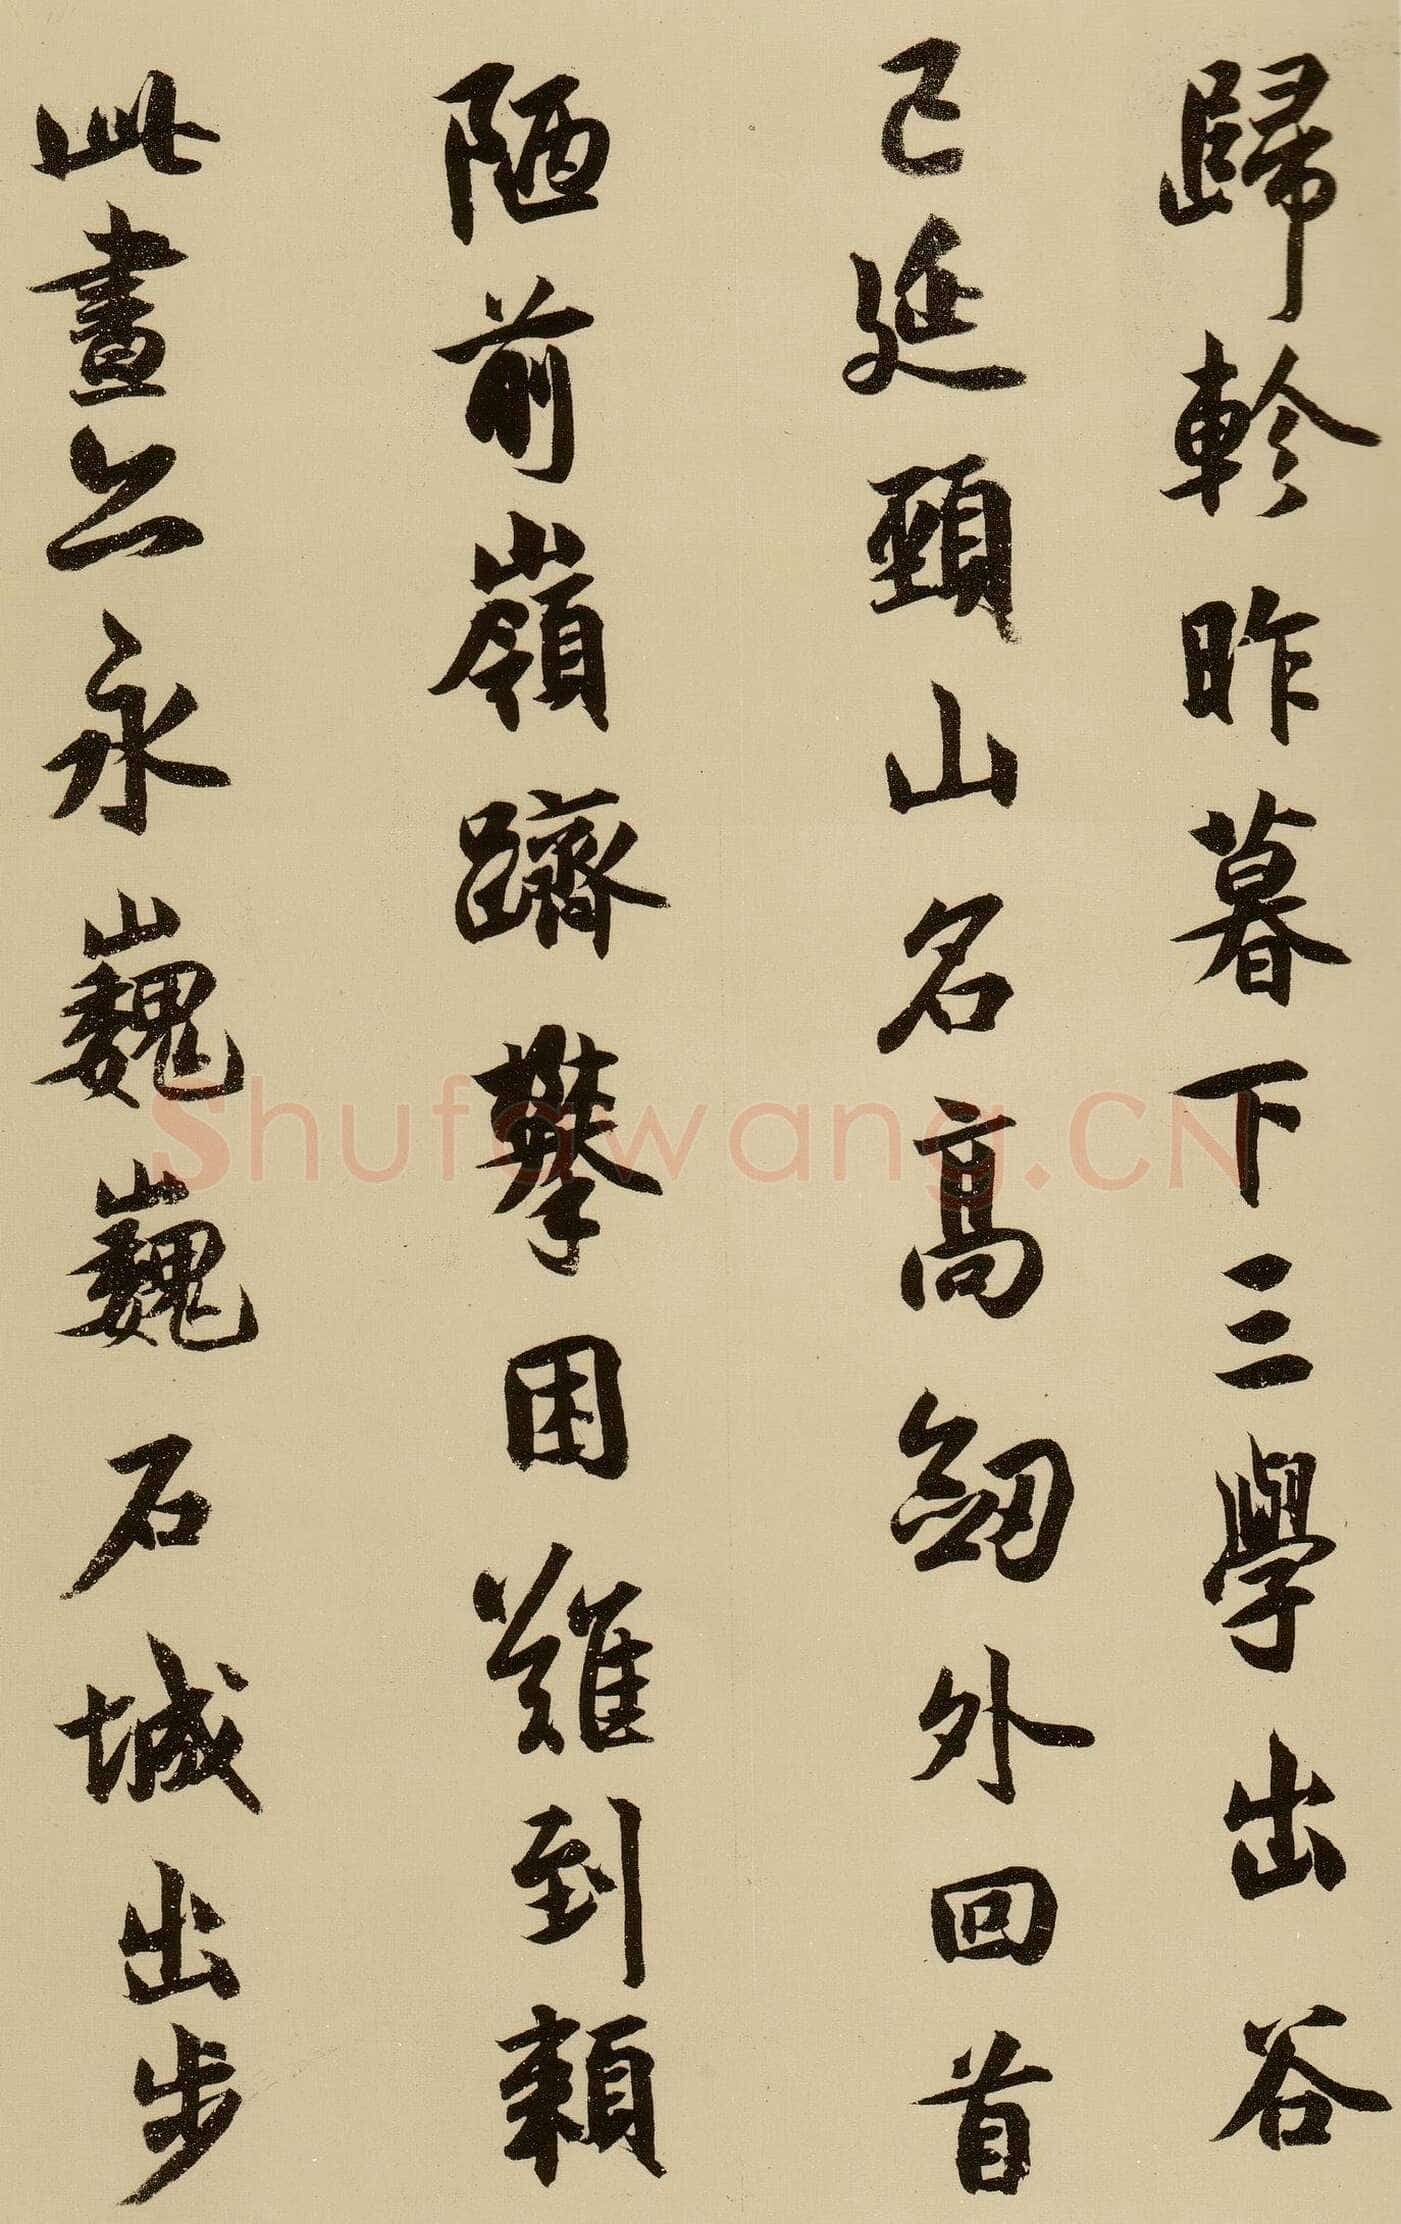 歸軫昨暮下三學出谷
已延頸山名高劒外回首
陋前嶺躋攀困難到賴
此畫亦永巍巍石城出步
Shufawang.CN